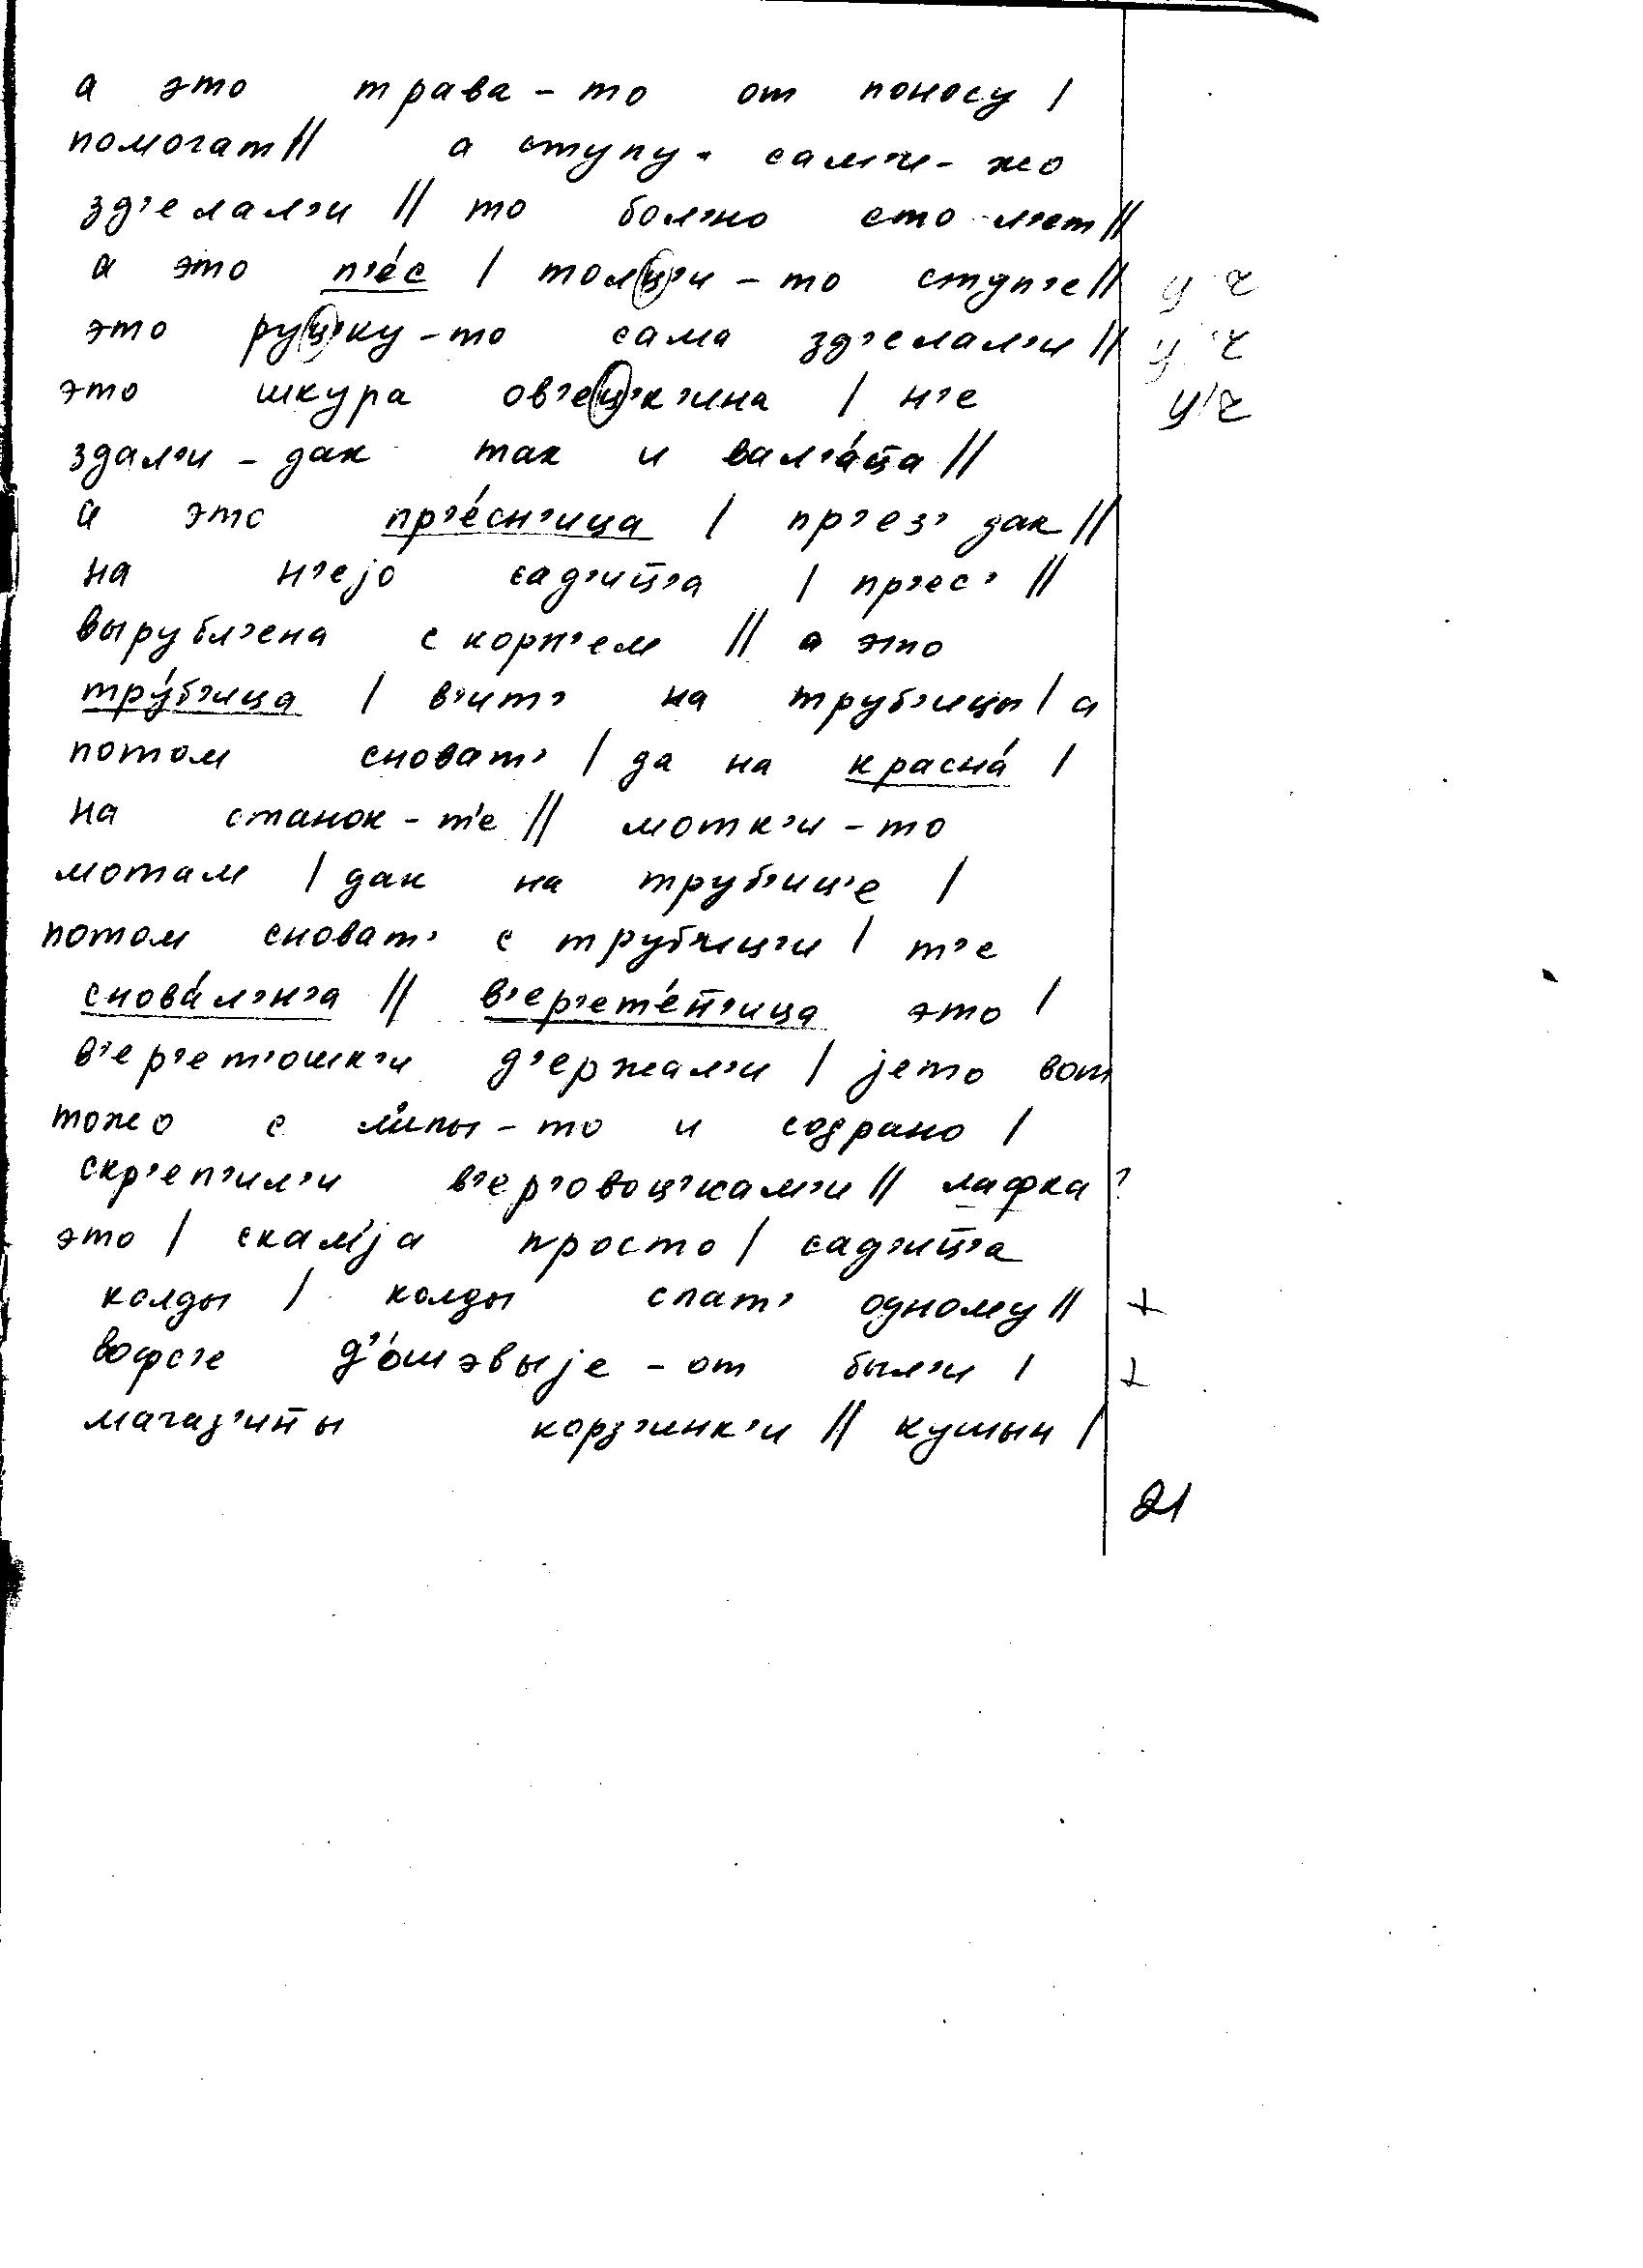 а это трава-то от поносу /
помогат // а ступу сам'и-жо
зд'елал'и // то бол'но сто л'ет //
а это п'е́с / толц'и-то ступ'е // ц'ч
это руц'ку-то сама зд'елал'и // ц'ч
это шкура ов'ец'к'ина / н'е ц'ч
здал'и-дак так и вал'а́ц̄а //
а это пр'е́сн'ица / пр'ез'зак //
на н'ејо сад'иц̄'а / пр'ес'т //
вырубл'ена с корн'ем // а это
тру́б'ица / в'ит' на труб'ицы / а
потом сноват' / да на красна́ /
на станок-т'е // мотк'и-то
мотам / дак на труб'иц'е /
потом сноват' с труб'иц'и / т'е
снова́л'н'а // в'ер'ет'е́н̄'ица это /
в'ер'ет'ошк'и д'ержал'и / јето вот
тожо с л'ипы-то и содрано /
скр'еп'ил'и в'ер'овоц'кам'и // лафка?
это / скам'ја просто / сад'иц̄'а
колды / колды спат' одному // +
вофс'е д'о́шэвыје-от был'и / +
магаз'ин̄ы корз'инк'и // кушын /
21